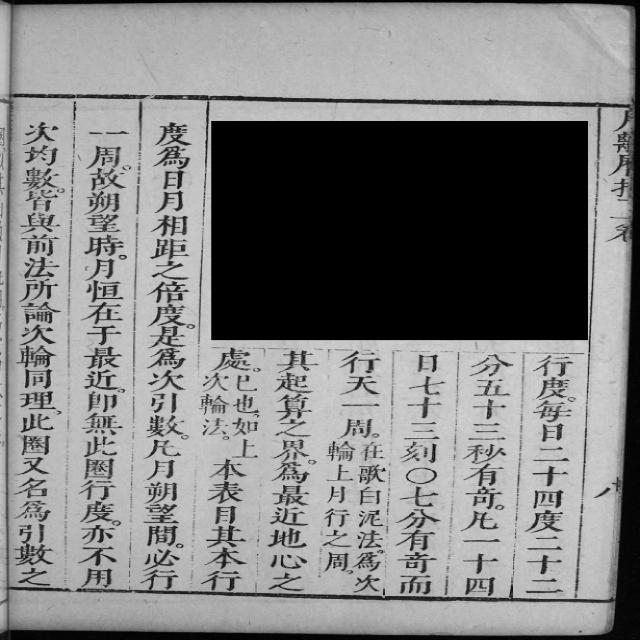 行度。每日二十四度二十二
分五十三秒有奇。凡一十四
日七十三刻〇七分有奇而
行天一周。在歌白泥法。爲次輪上月行之周。
其起算之界。爲最近地心之
處。巳也。如上次輪法。本表目其本行
度爲日月相距之倍度。是爲次引數。凡月朔望間。必行
一周。故朔望時。月恒在于最近。卽無此圈行度。亦不用
次均數。皆與前法所論次輪同理。此圈又名爲引數之